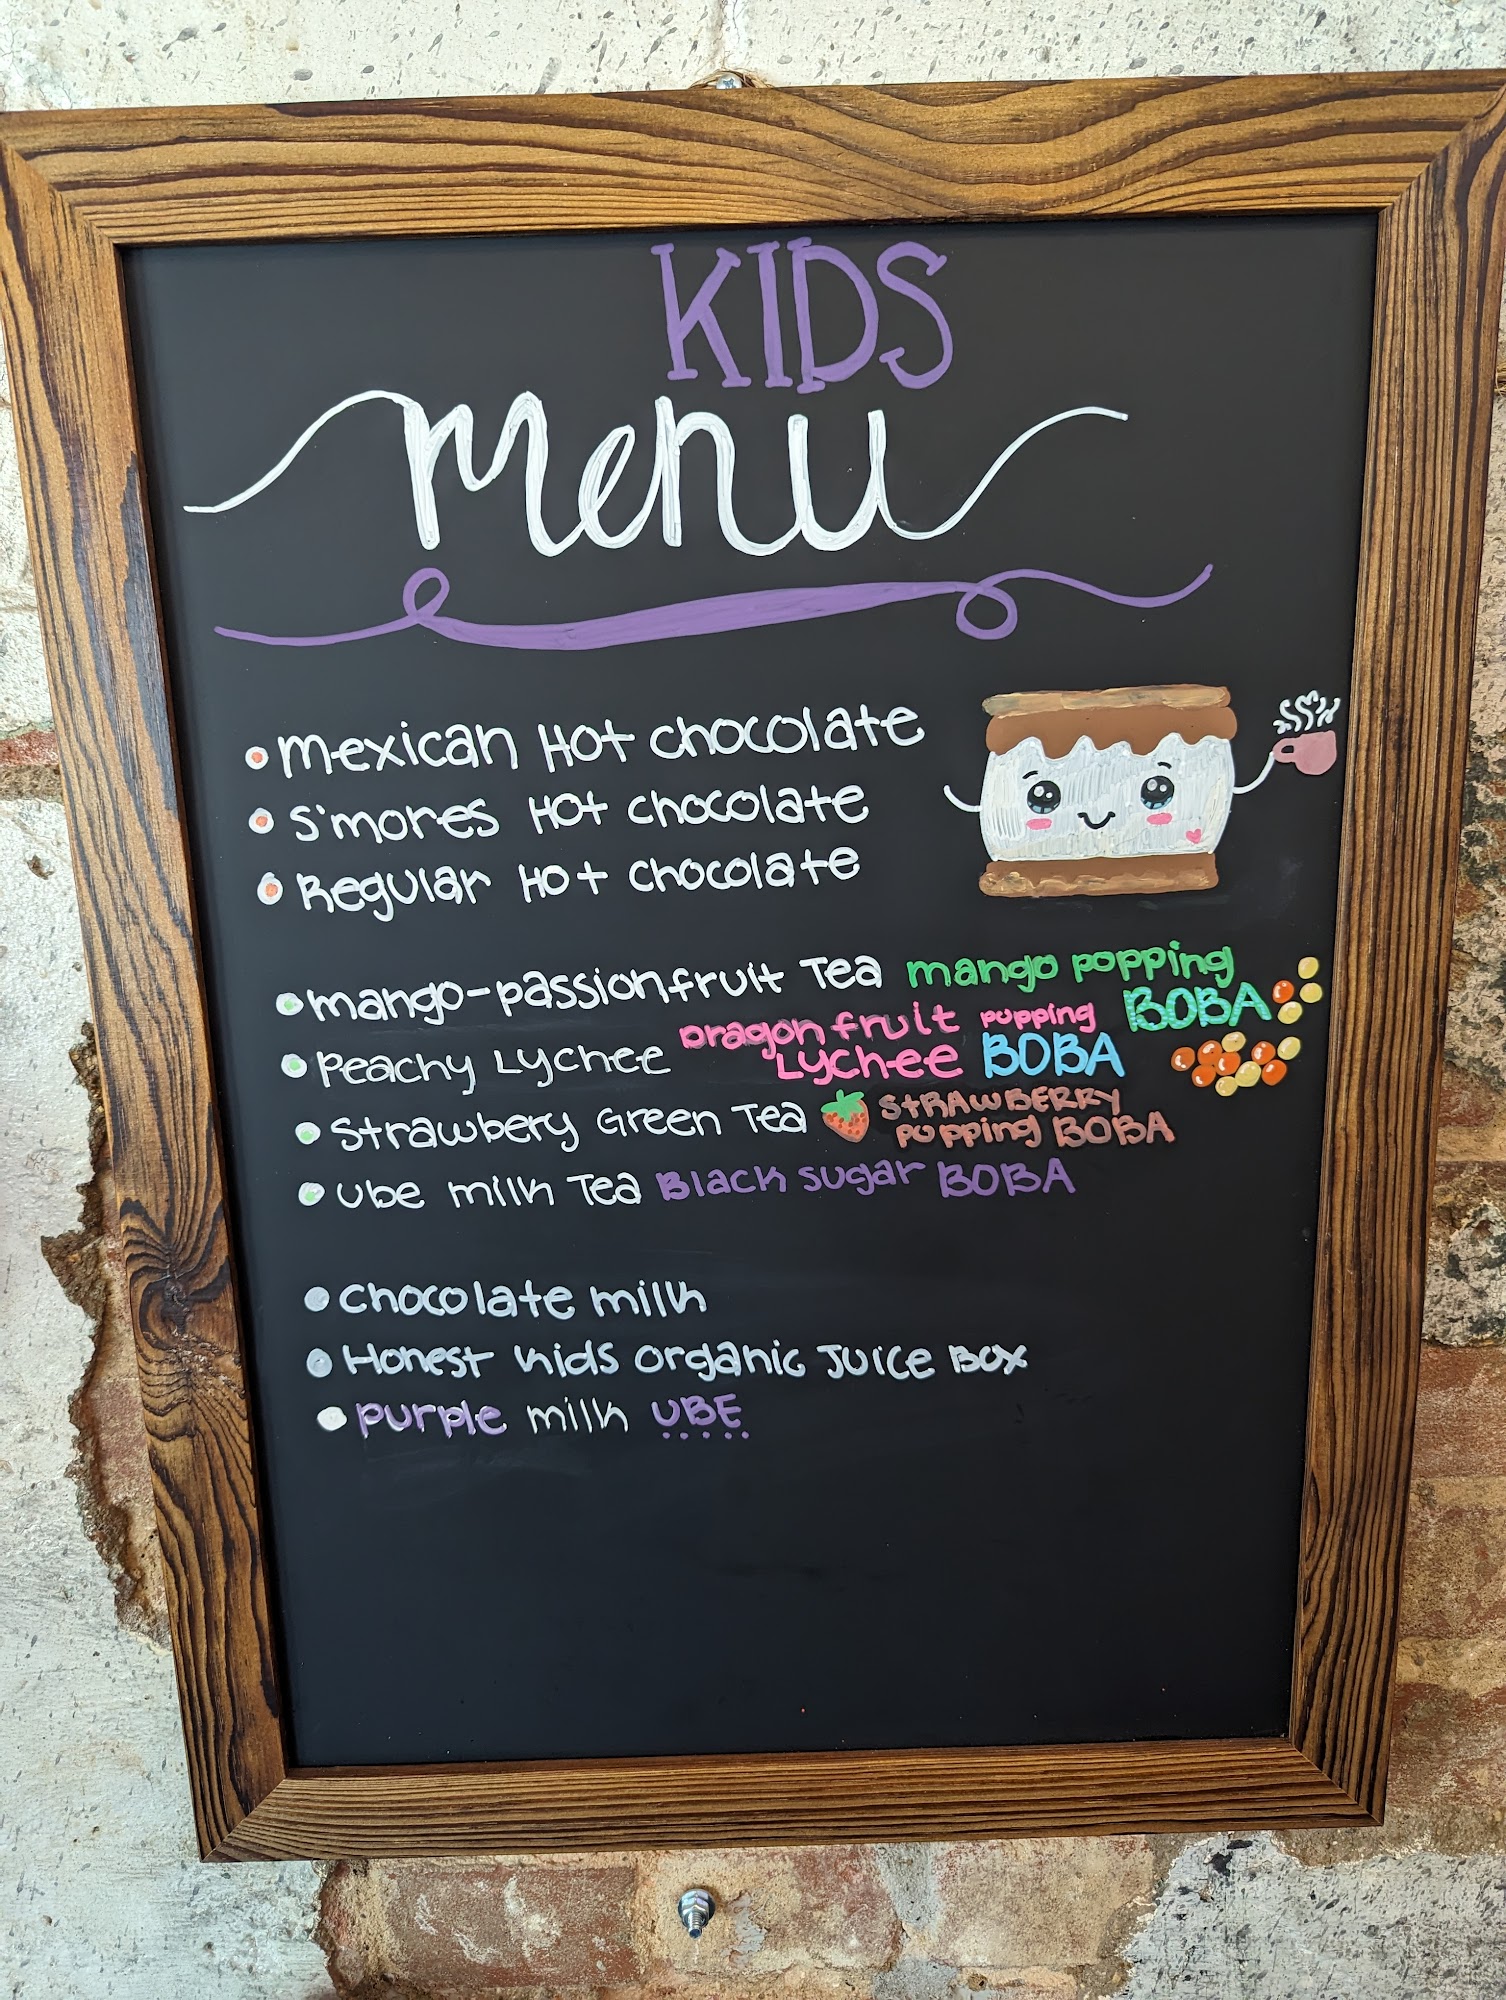 KIDS
menu
• Mexican Hot chocolate
• S'mores Hot chocolate
• Regular Hot chocolate
• mango-passionfruit Tea mango popping BOBA
• Peachy Lychee Dragon fruit Lychee popping BOBA
• Strawbery Green Tea STRAWBERRY popping BOBA
• ube milk Tea Black sugar BOBA
• chocolate milk
• Honest Kids organic Juice Box
• purple milk UBE